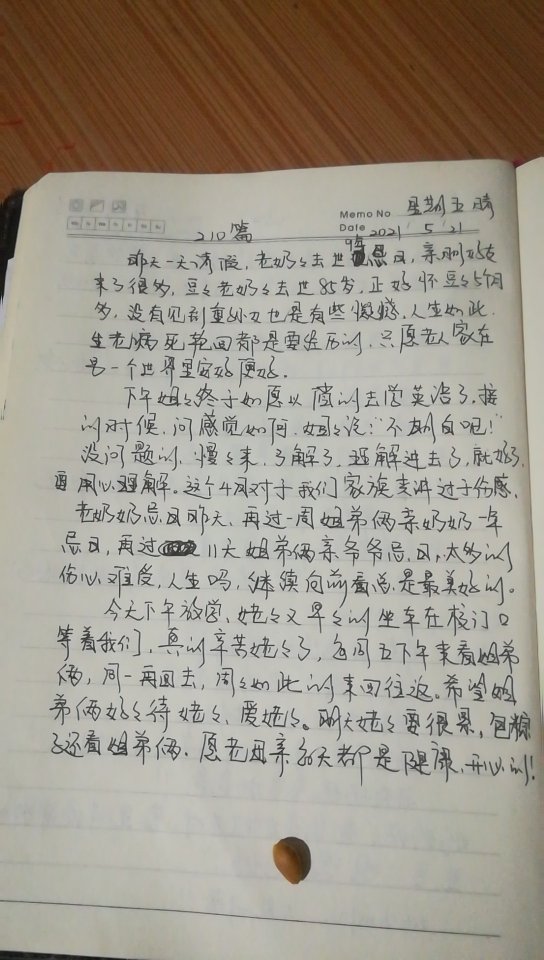 Memo No 星期五 晴
210篇 Date 2021 5 21
昨天一天请假，老奶々去世9年忌日，亲朋好友
来了很多，豆々老奶々去世85岁，正好怀豆々5个月
多，没有见到重孙女也是有些惋惜，人生如此，
生老病死轮回都是要经历的，只愿老人家在
另一个世界里安好便好。
下午姐々终于如愿以偿的去学英语了，接
的时候，问感觉如何，姐々说：“不太明白吧！”
没问题的，慢々来，了解了，理解进去了，就好了，
要用心理解。这个4月对于我们家族来讲过于伤感，
老奶奶忌日昨天，再过一周姐弟俩亲奶奶一年
忌日，再过 11天姐弟俩亲爷爷忌日，太多的
伤心难受，人生吗，继续向前看总是最美好的。
今天下午放学，姥々又早々的坐车在校门口
等着我们，真的辛苦姥々了，每周五下午来看姐弟
俩，周一再回去，周々如此的来回往返。希望姐
弟俩好々待姥々、爱姥々。明天姥々要很累，包粽
子还看姐弟俩，愿老母亲每天都是健康、开心的！